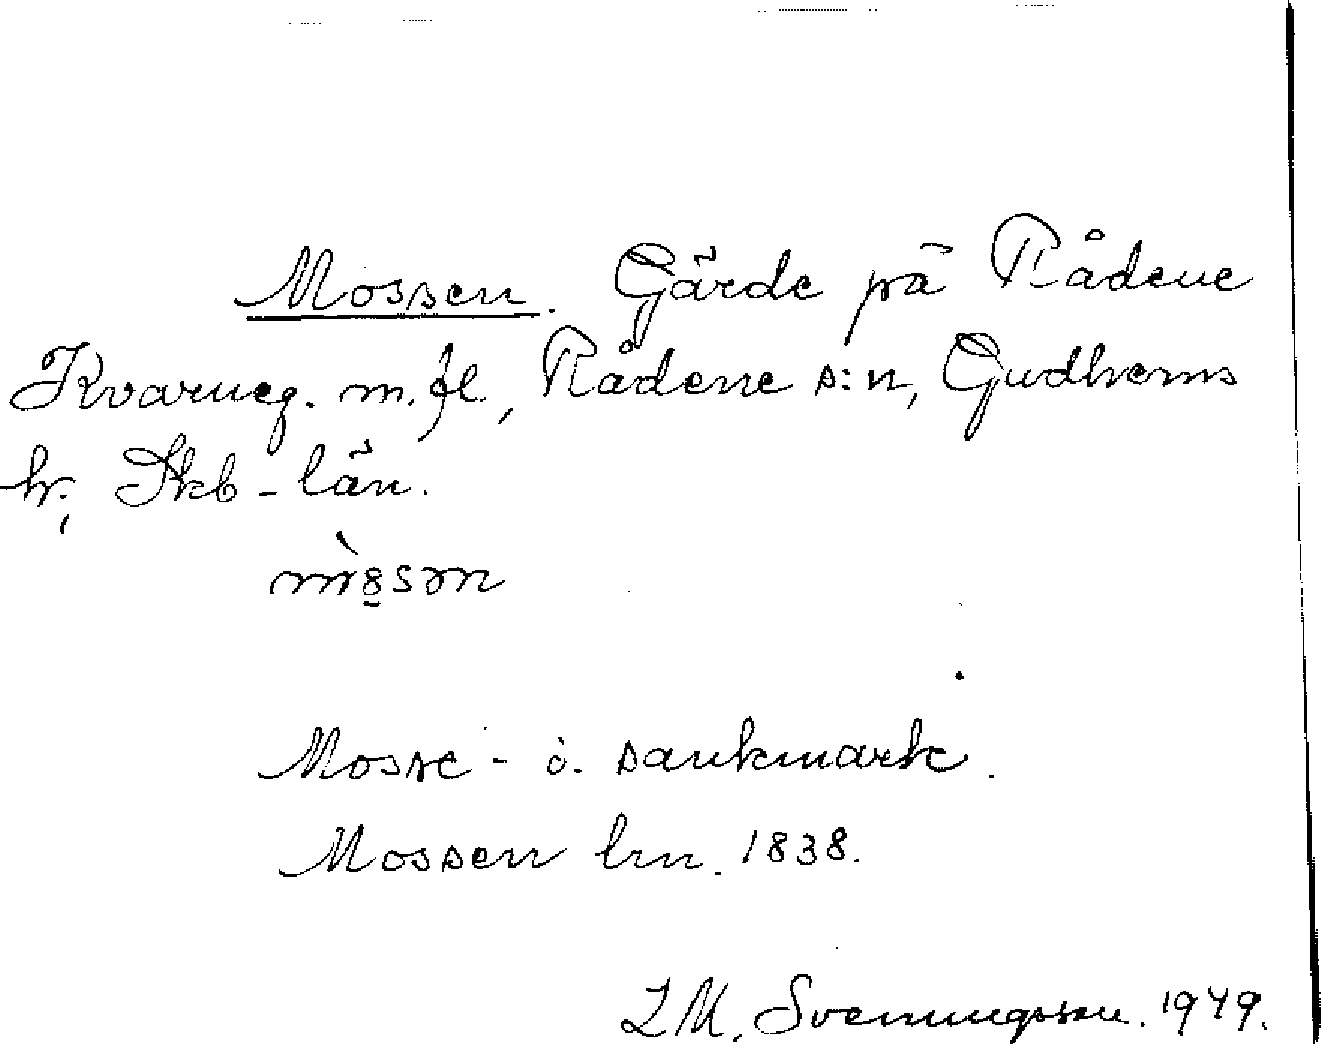 Mossen. Gärde på Rådene
Kvarneg. m.fl., Rådene s:n, Gudhems
h., Skb-län.
mòsən
Mosse- o. sankmark.
Mossen lm. 1838.
L M. Svenungsson. 1949.